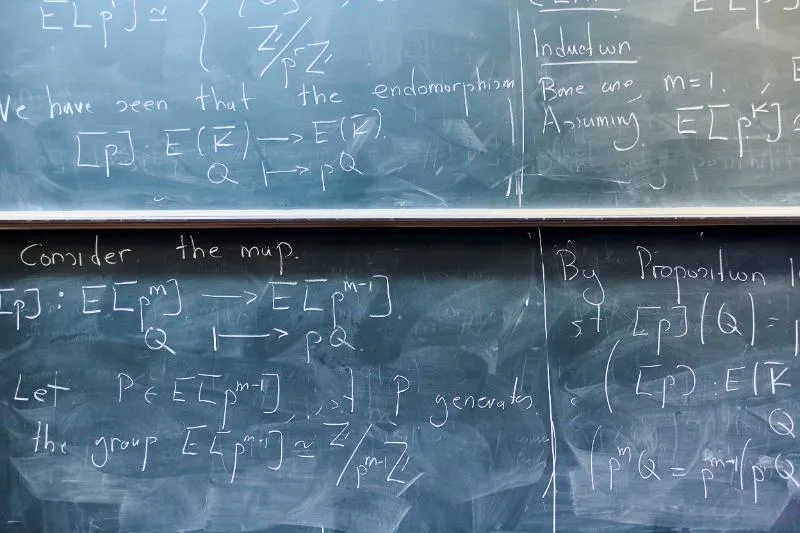 E[p^r] ≃ { {O},
Z/p^r Z
We have seen that the endomorphism
[p] : E(K̅) → E(K̅).
Q ↦ pQ
Induction
Base case, m=1.
Assuming E[p^k] ≃
Consider the map.
[p] : E[p^m] → E[p^{m-1}].
Q ↦ pQ.
Let P ∈ E[p^{m-1}] P generates
the group E[p^{m-1}] ≃ Z/p^{m-1} Z
By Proposition
st [p](Q) =
( [p] : E(K̅
Q
(p^m Q = p^{m-1}(p Q